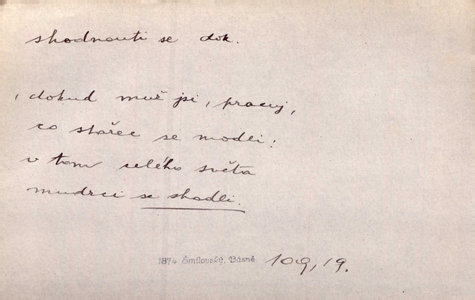 shodnouti se dok.
, dokud muž jsi, pracuj,
co stařec se modli:
v tom celého světa
mudrci se shodli.
1874 Šmilovský, Básně 109, 19.